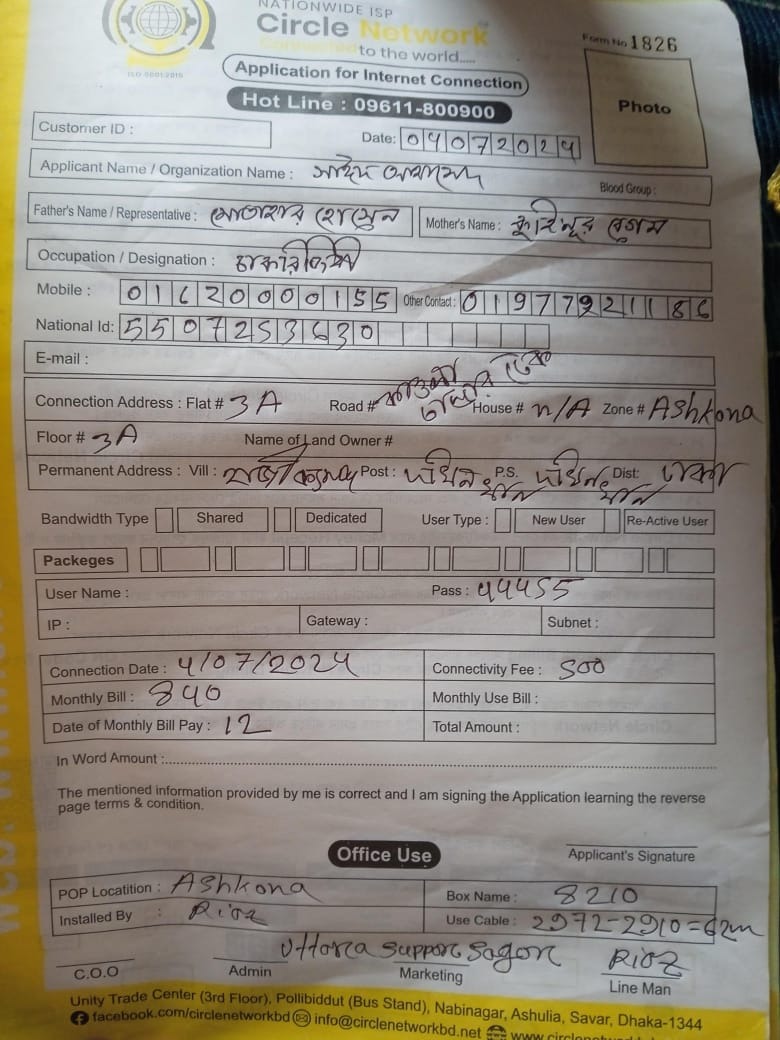 NATIONWIDE ISP
Circle Network
Connected to the world.....
ISO 9001:2015
Form No 1826
Application for Internet Connection
Hot Line : 09611-800900
Photo
Customer ID :
Date: 04072024
Applicant Name / Organization Name : সাইদ আহমেদ
Blood Group :
Father's Name / Representative : মোতাহার হোসেন Mother's Name : নূর বেগম
Occupation / Designation : চাকরিজিবী
Mobile : 01620000155 Other Contact : 01977921186
National Id: 5507253630
E-mail :
Connection Address : Flat # 3A Road # House # n/A Zone # Ashkona
Floor # 3A Name of Land Owner #
Permanent Address : Vill : Post : দক্ষিন খান P.S. দক্ষিন খান Dist: ঢাকা
Bandwidth Type Shared Dedicated User Type : New User Re-Active User
Packeges
User Name : Pass : 44455
IP : Gateway : Subnet :
Connection Date : 4/07/2024 Connectivity Fee : 500
Monthly Bill : 840 Monthly Use Bill :
Date of Monthly Bill Pay : 12 Total Amount :
In Word Amount :
The mentioned information provided by me is correct and I am signing the Application learning the reverse
page terms & condition.
Office Use
Applicant's Signature
POP Locatition : Ashkona Box Name : 8210
Installed By : Rioz Use Cable : 2972-2910=62m
Uttara Support Sagor Rioz
C.O.O Admin Marketing Line Man
Unity Trade Center (3rd Floor), Pollibiddut (Bus Stand), Nabinagar, Ashulia, Savar, Dhaka-1344
facebook.com/circlenetworkbd info@circlenetworkbd.net